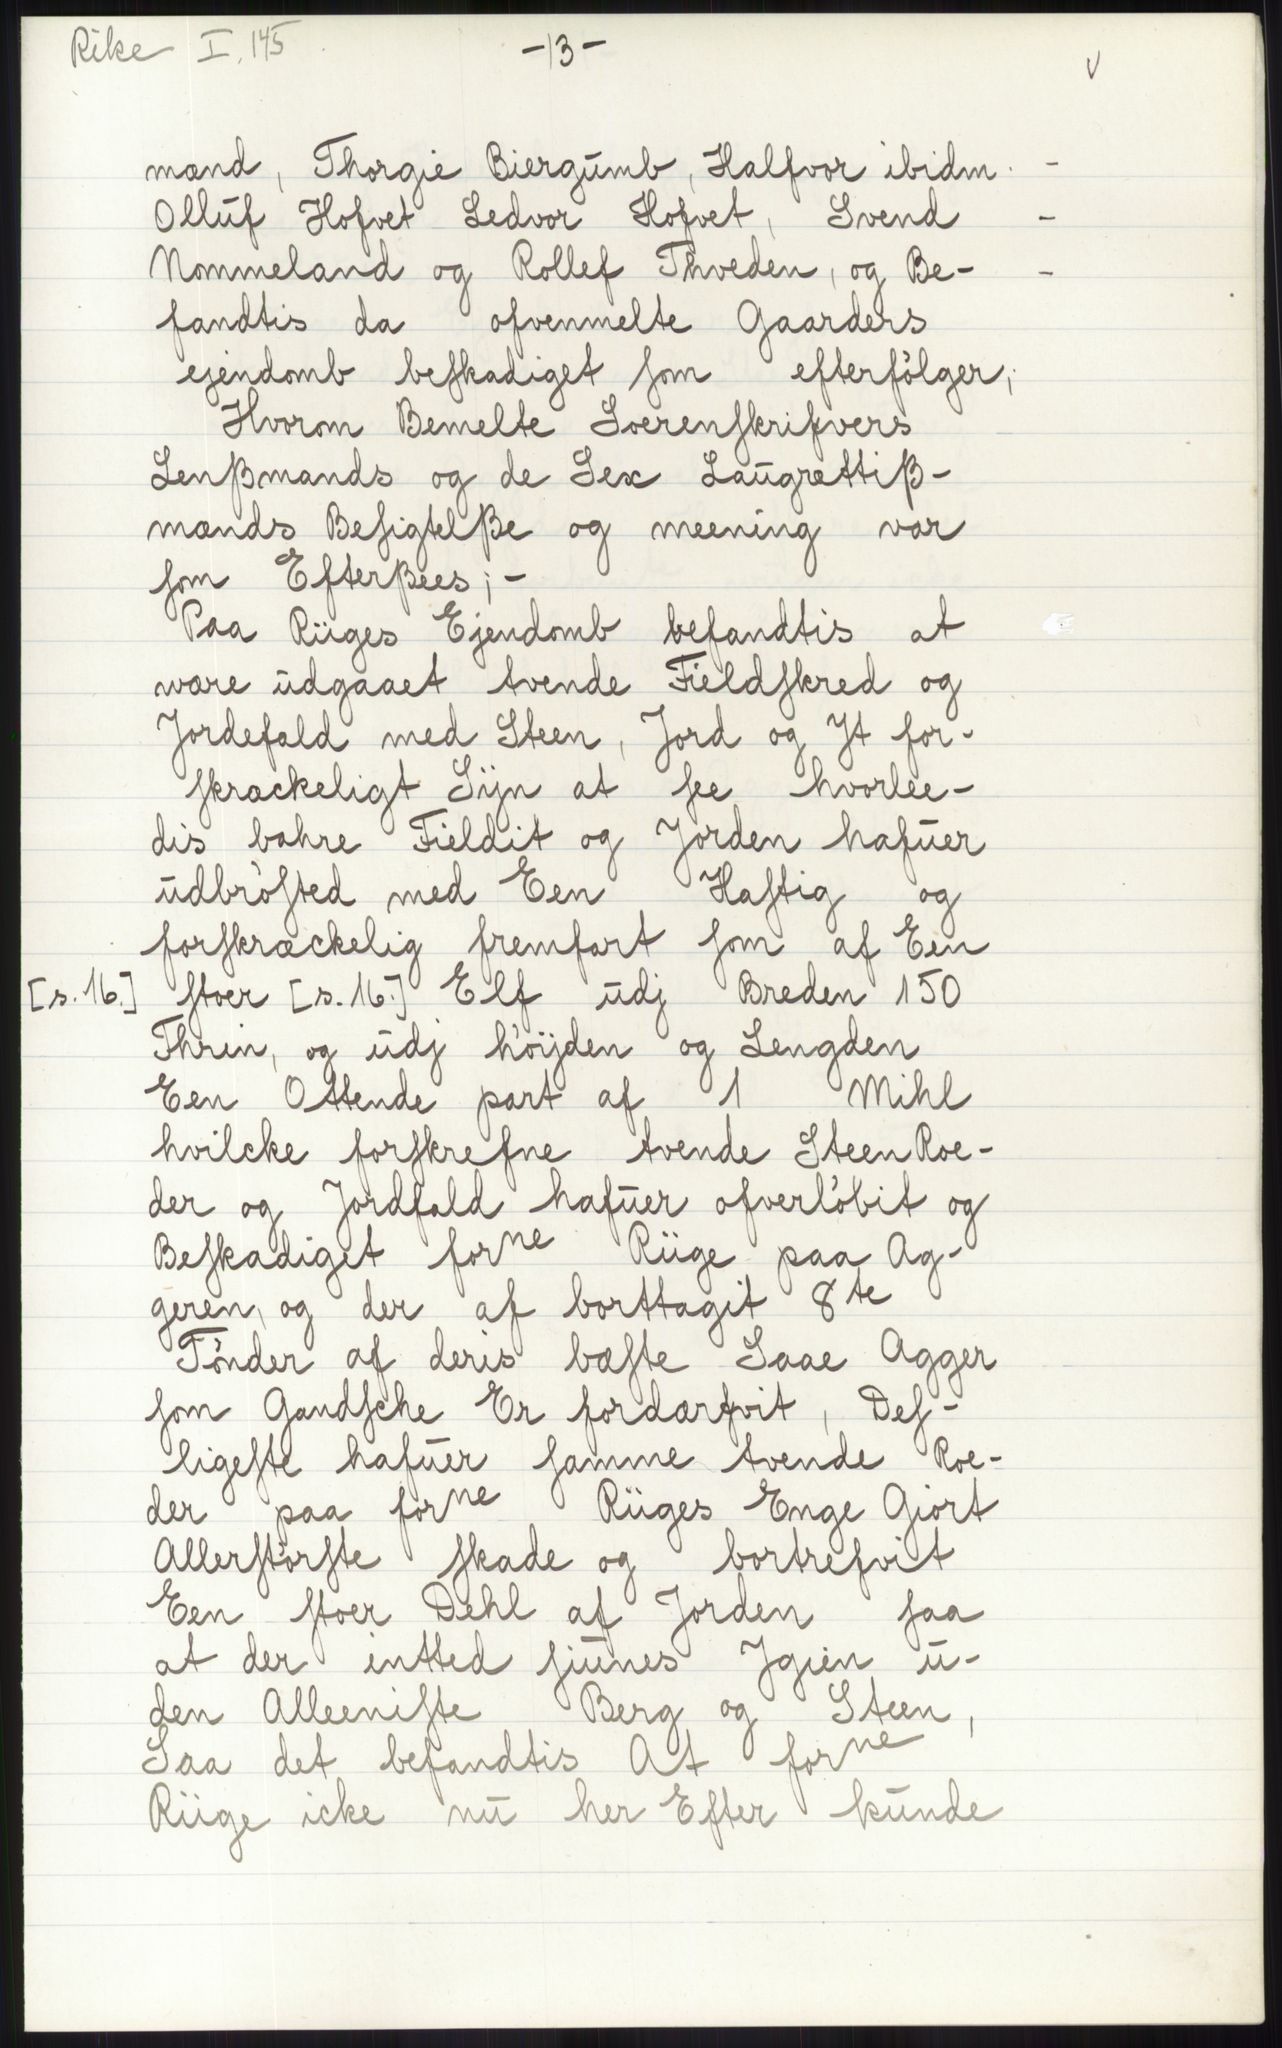 Rike I, 145
-13-
v
mænd, Thorgie Biergumb, Halfvor ibidm. -
Olluf Hofvet Sedvor Hofvet, Svend -
Nommeland og Rollef Thveden, og Be- -
fandtis da ofvenmelte Gaarders
ejendomb beskadiget som efterfölger;
Hvorom Bemelte Soerenskrifvers
Lenßmands og de Sex Laugrettiß-
mænds Besigtelße og meening var
som Efterßees; -
Paa Rüges Ejendomb befandtis at
være udgaaet tvende Fieldskred og
Jordefald med Steen, Jord og It for-
skrackeligt Sÿn at see hvorlee-
dis bahre Fieldit og Jorden hafuer
udbrösted med Een Hastig og
forskræckelig fremfart som af Een
[s. 16.] stoer [s. 16.] Elf udj Breden 150
Thrin, og udj höÿden og Lengden
Een Ottende part af 1 Mihl
hvilcke forskrefne tvende SteenRoe-
der og Jordfald hafuer ofverlöbit og
Beskadiget forne Rüge paa Ag-
geren, og der af borttagit 8te
Tönder af deris bæste Saae Agger
som Gandsche Er fordærfvit, Des-
ligeste hafuer samme tvende Roe-
der paa forne Rüges Enge Giort
Allerstörste skade og bortrefvit
Een stoer Dehl af Jorden saa
at der intted siunes Igien u-
den Alleeniste Berg og Steen,
Saa det befandtis At forne
Rüge icke nu her Efter kunde